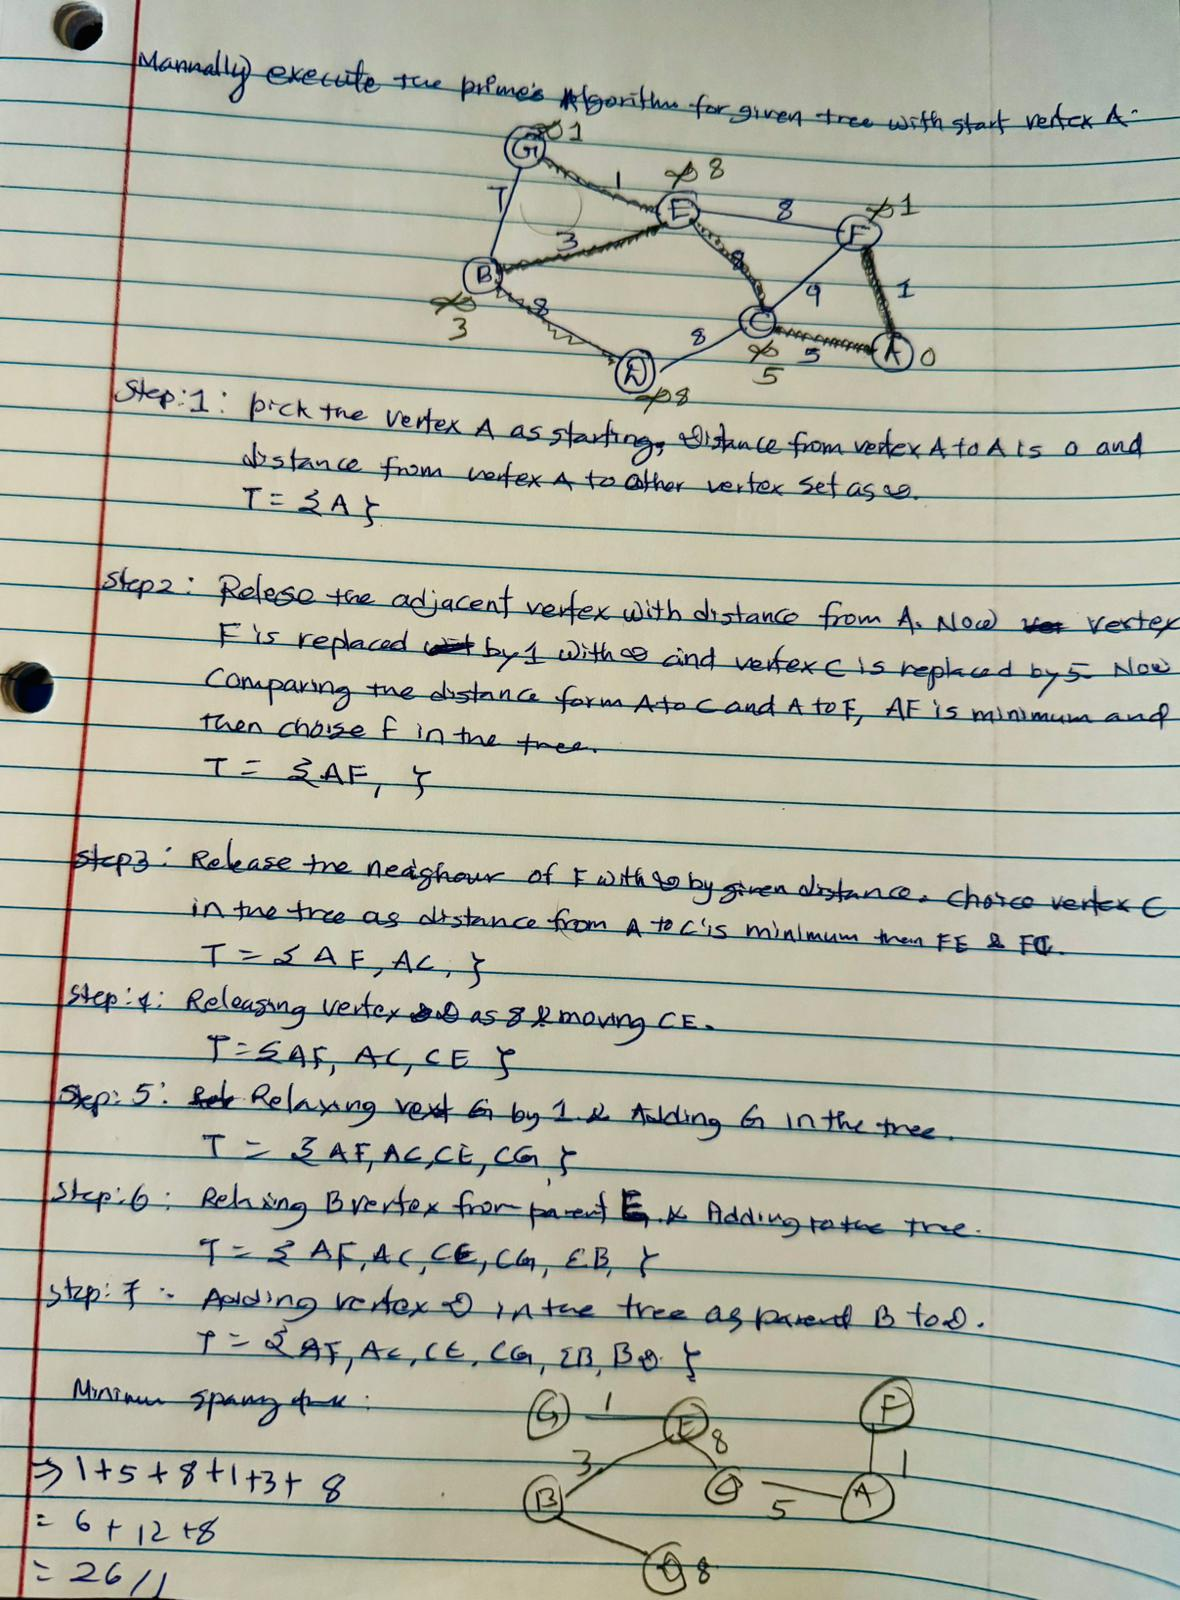 Mannally execute the prime's Algorithm for given tree with start vertex A.
G ∞ 1
1
E ∞ 8
8
F ∞ 1
7
3
8
9
1
B ∞ 3
8
8
C ∞ 5
5
A 0
D ∞ 8
Step:1: pick the vertex A as starting, Distance from vertex A to A is 0 and
distance from vertex A to other vertex set as ∞.
T = {A}
Step2: Relese the adjacent vertex with distance from A. Now vertex
F is replaced by 1 with ∞ and vertex C is replaced by 5. Now
Comparing the distance form A to C and A to F, AF is minimum and
then choise F in the tree.
T = {AF, }
Step3: Release the neighour of F with ∞ by given distance. Choice vertex C
in the tree as distance from A to C is minimum then FE & FC.
T = {AF, AC, }
Step:4: Releasing vertex D as 8 & moving CE.
T = {AF, AC, CE }
Step: 5: Relaxing vext G by 1 & Adding G in the tree.
T = {AF, AC, CE, CG }
Step:6: Relaxing B vertex from parent E & Adding to the tree.
T = {AF, AC, CE, CG, EB, }
Step: 7 : Adding vertex D in the tree as parent B to D.
T = {AF, AC, CE, CG, EB, BD }
Minimum spaning tree :
G 1 E
F
3
8
1
B
C
5
A
D 8
⇒ 1+5+8+1+3+8
= 6+12+8
= 26//